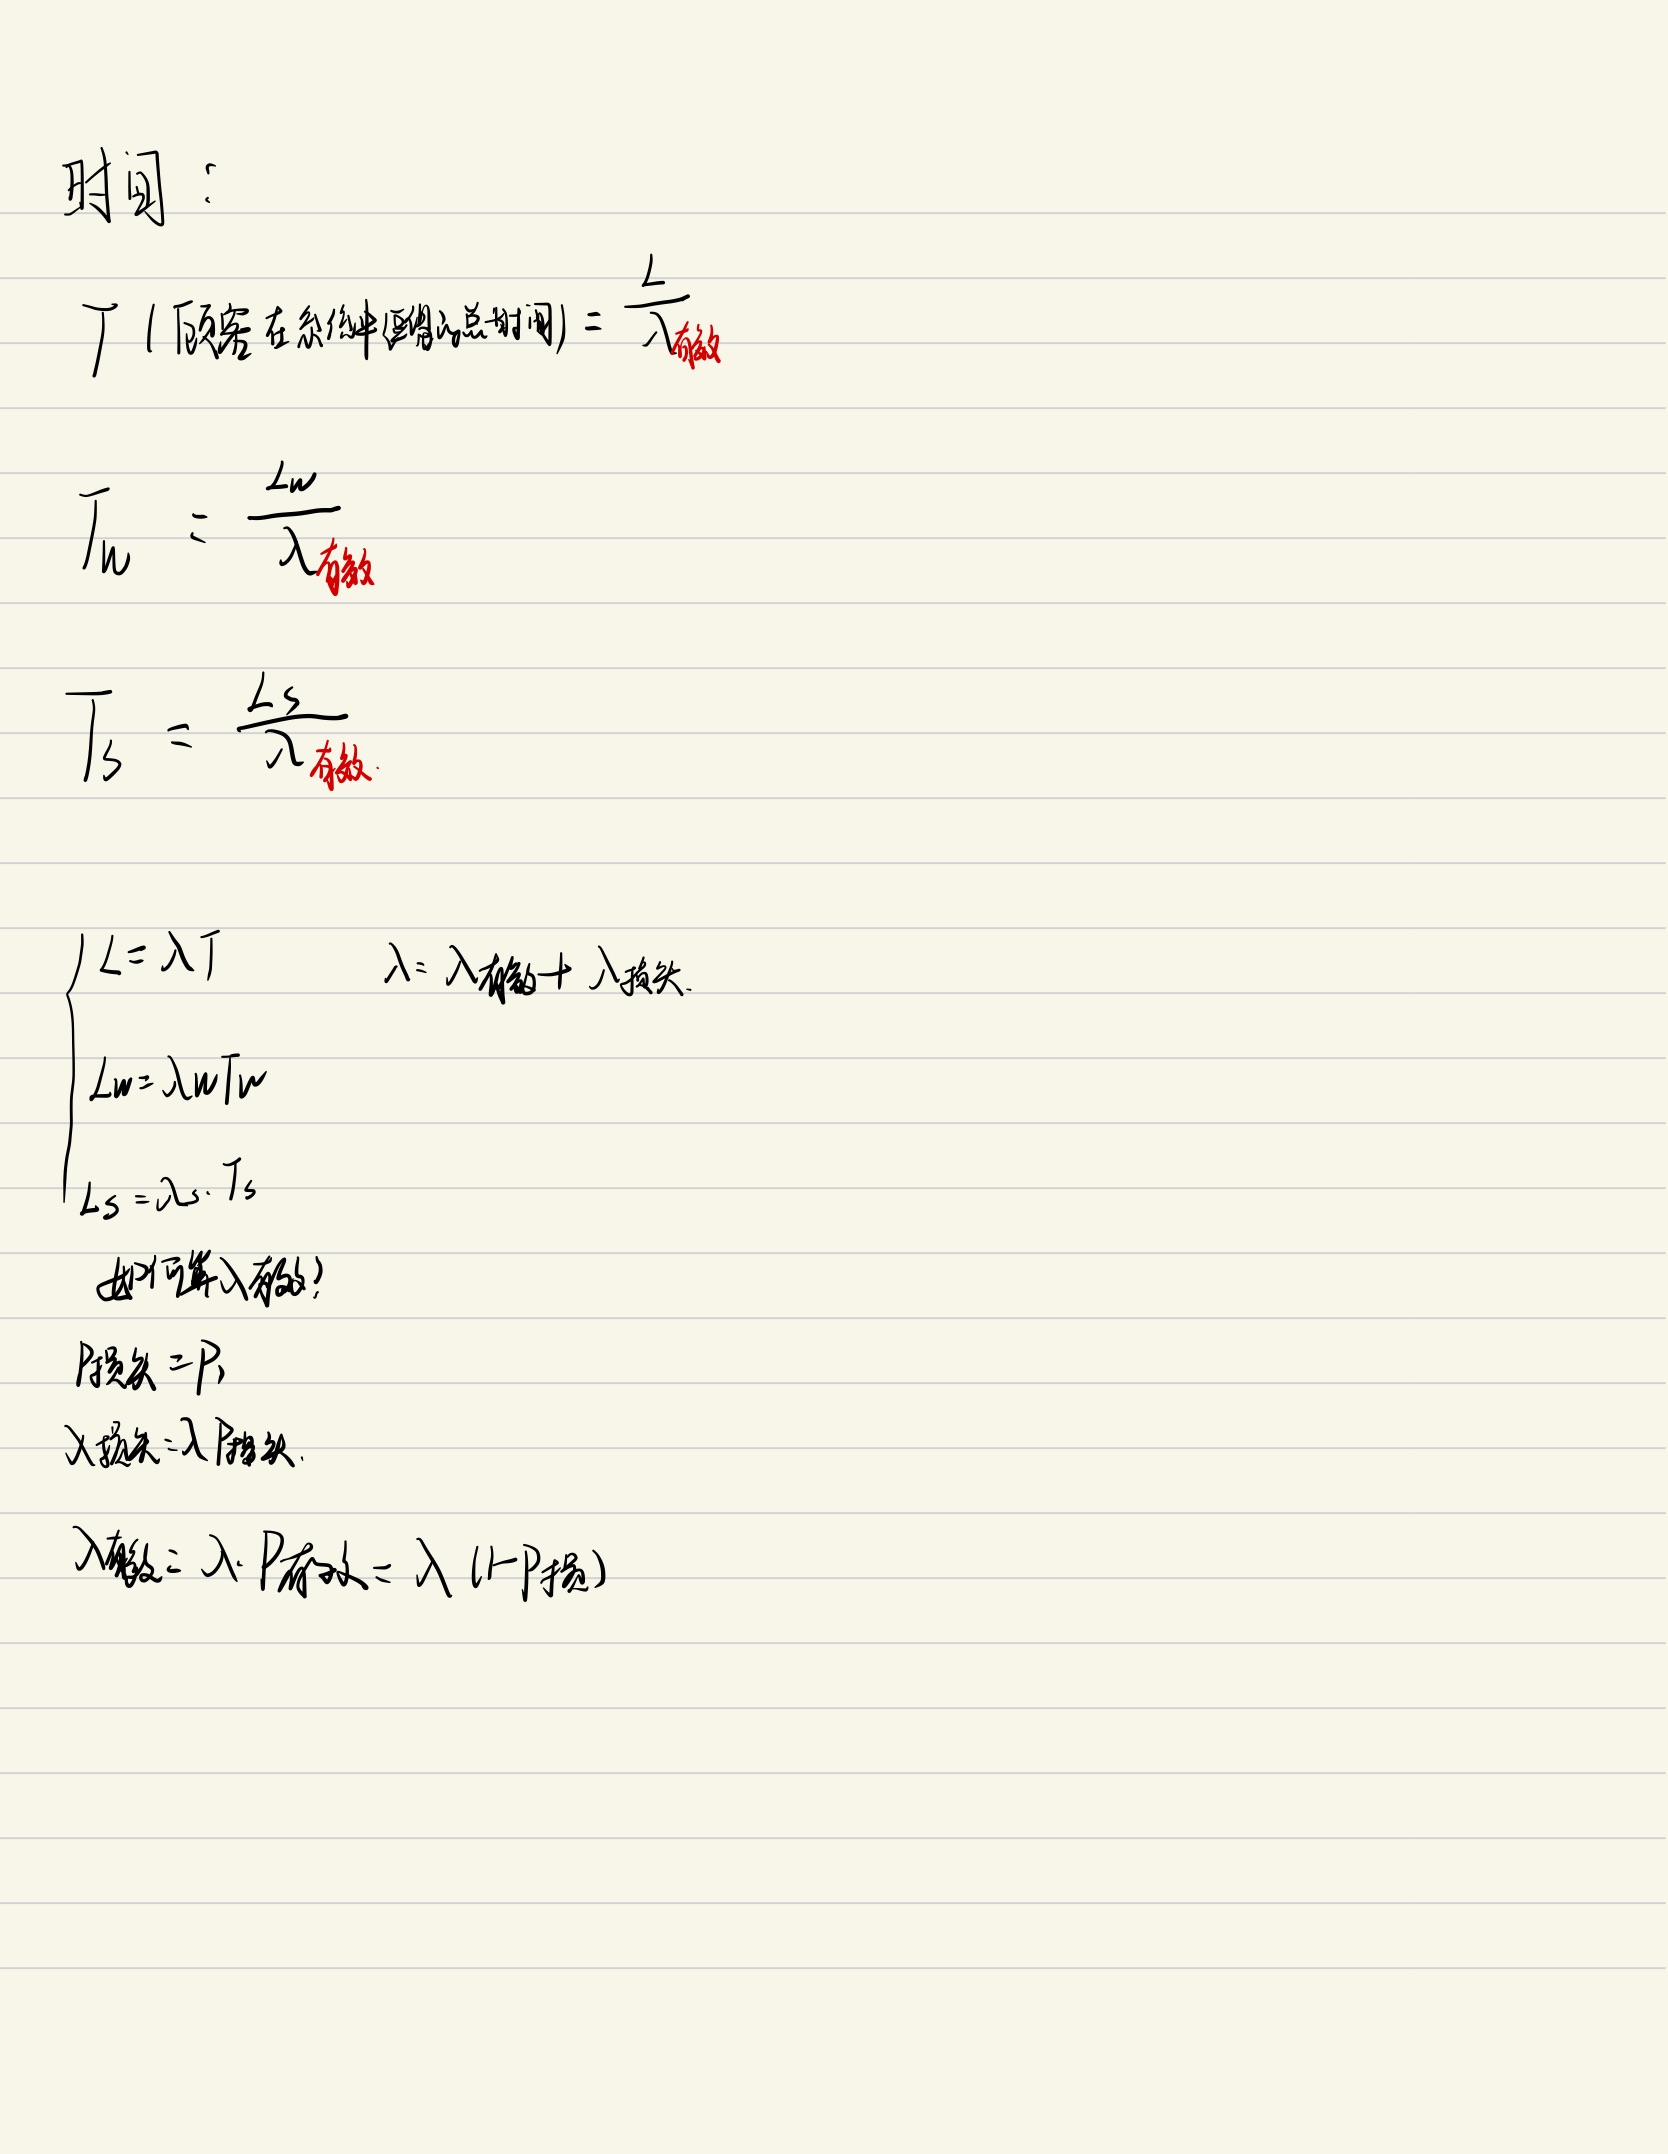 时间：
T（顾客在系统中逗留的总时间）= L / λ有效
Tw = Lw / λ有效
Ts = Ls / λ有效.
{ L = λT λ = λ有效 + λ损失.
Lw = λw Tw
Ls = λs · Ts
如何算λ有效？
P损失 = P
λ损失 = λ P损失.
λ有效 = λ · P有效 = λ (1-P损)